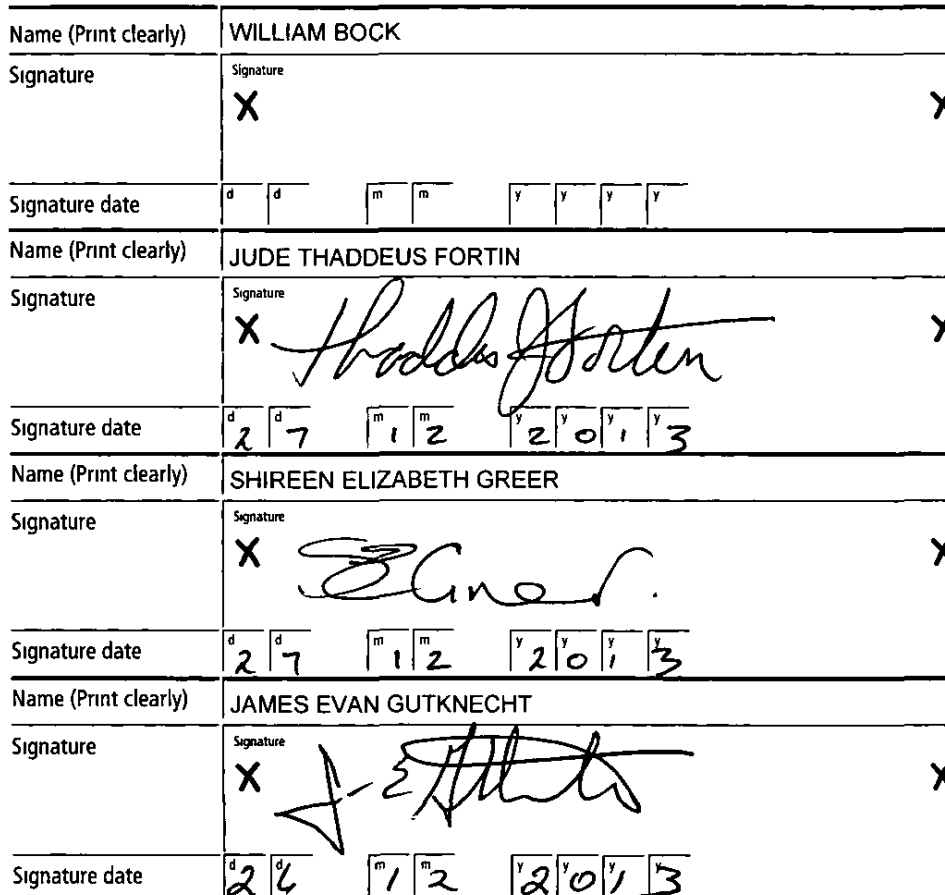 Name (Print clearly) WILLIAM BOCK
Signature Signature
X X
Signature date d d m m y y y y
Name (Print clearly) JUDE THADDEUS FORTIN
Signature Signature
X Thaddeus J Fortin X
Signature date d 2 d 7 m 1 m 2 y 2 y 0 y 1 y 3
Name (Print clearly) SHIREEN ELIZABETH GREER
Signature Signature
X SEGreer. X
Signature date d 2 d 7 m 1 m 2 y 2 y 0 y 1 y 3
Name (Print clearly) JAMES EVAN GUTKNECHT
Signature Signature
X X
Signature date d 2 d m 1 m 2 y 2 y 0 y 1 y 3